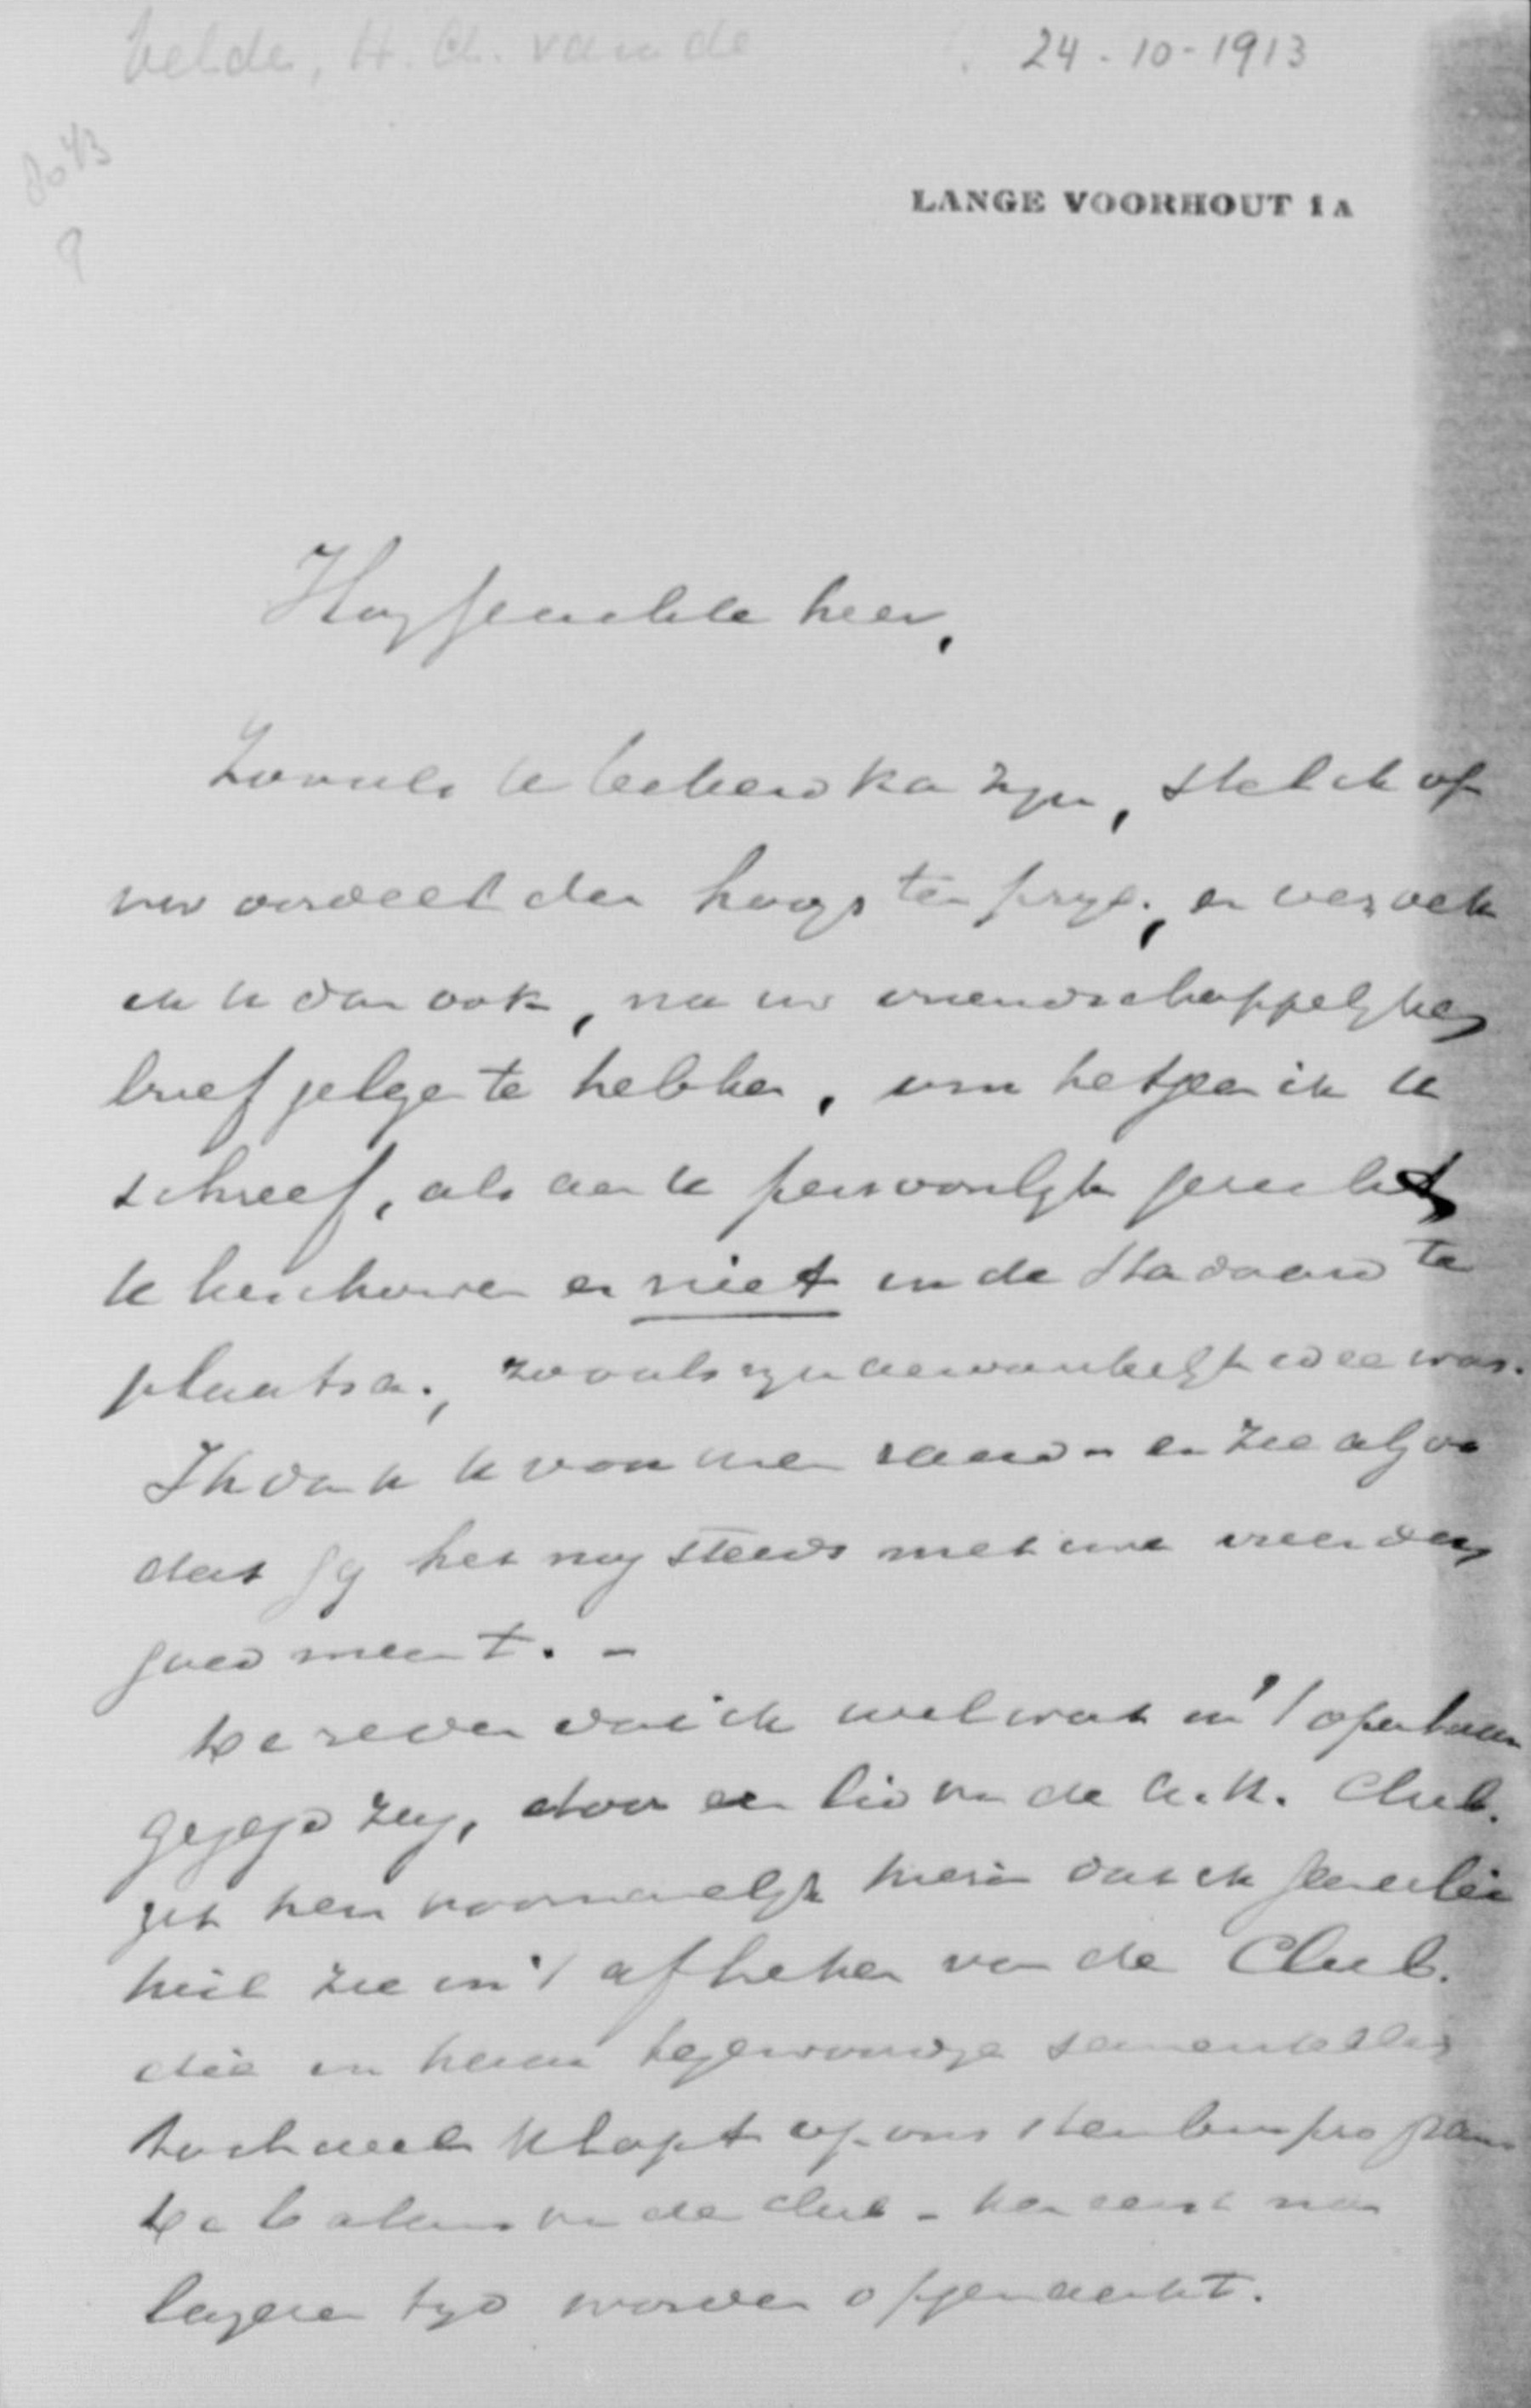 Velde, H. Ch. van de 24-10-1913
8043
?
LANGE VOORHOUT 1A
Hooggeachte heer,
Zooals U bekend kan zijn, stel ik op
uw oordeel den hoogsten prijs; en verzoek
ik U dan ook, na uw vriendschappelijken
brief gelezen te hebben, om hetgeen ik U
schreef, als aan U persoonlijk gericht
te beschouwen en niet in de Standaard te
plaatsen; zooals mijn aanvankelijk idee was.
Ik dank U voor uwen raad - en zie alzoo
dat gij het nog steeds met uwe vrienden
goed meent. -
De reden dat ik wel wat in 't openbaar
gezegd zag, door een lid van de A.K. Club.
zit hem voornamelijk hierin dat ik geenerlei
heil zie in 't afbreken van de Club.
die in haar tegenwoordige samenstelling
toch veel klopt op ons program
De balans van de club - kan eerst na
langeren tijd worden opgemaakt.